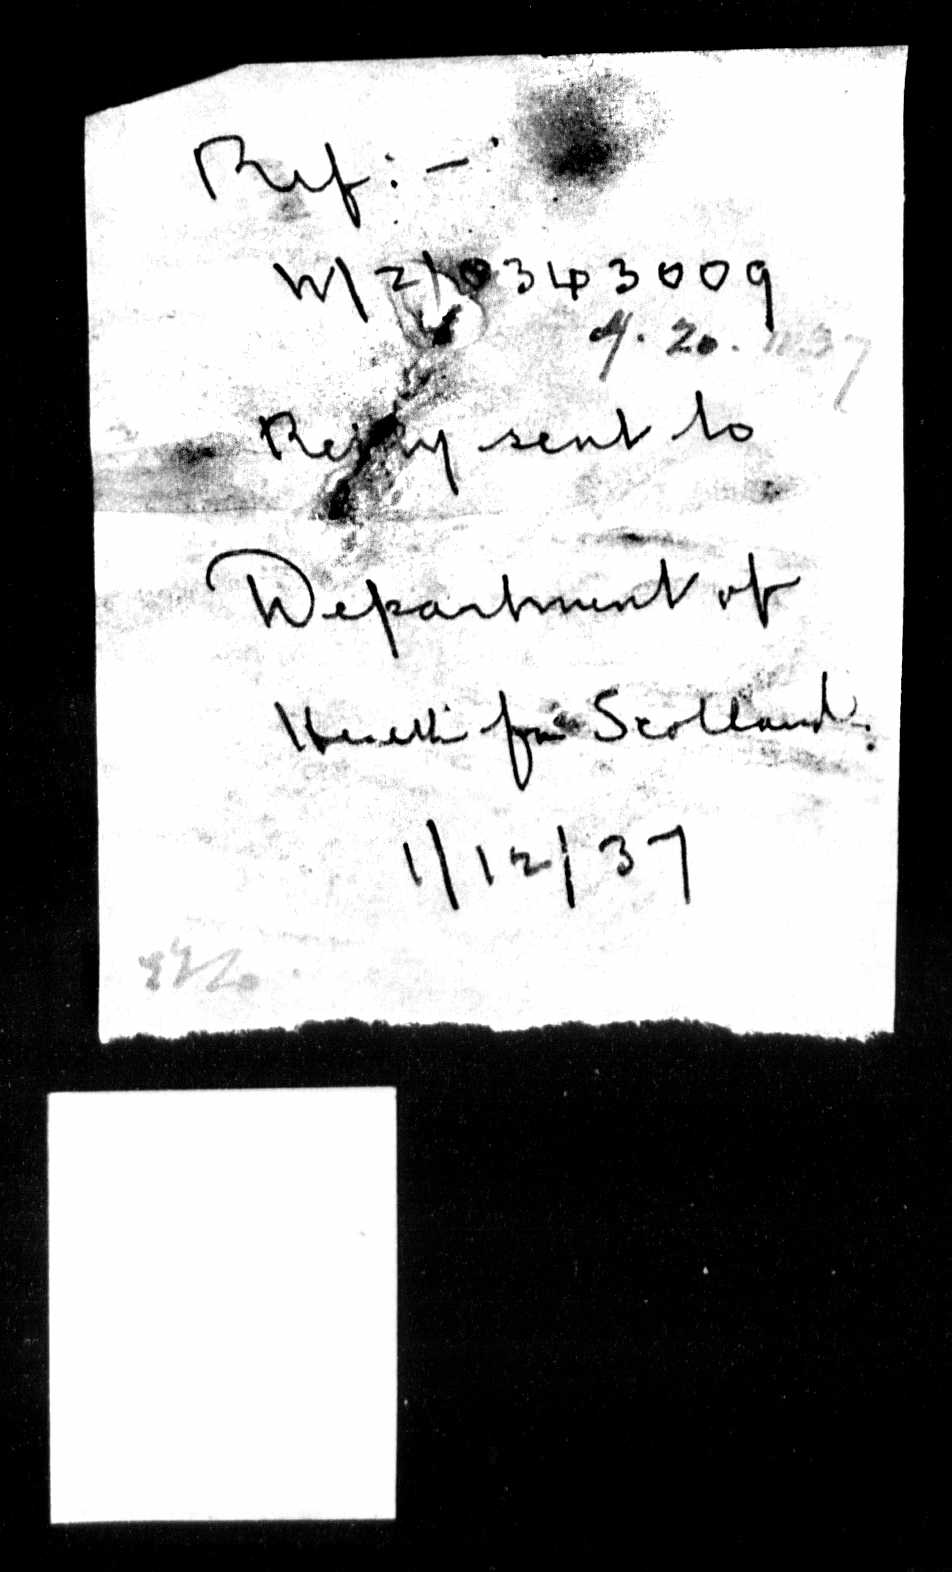 Ref:-
W/2/0343009
20. 11.37
Reply sent to
Department of
Health for Scotland.
1/12/37